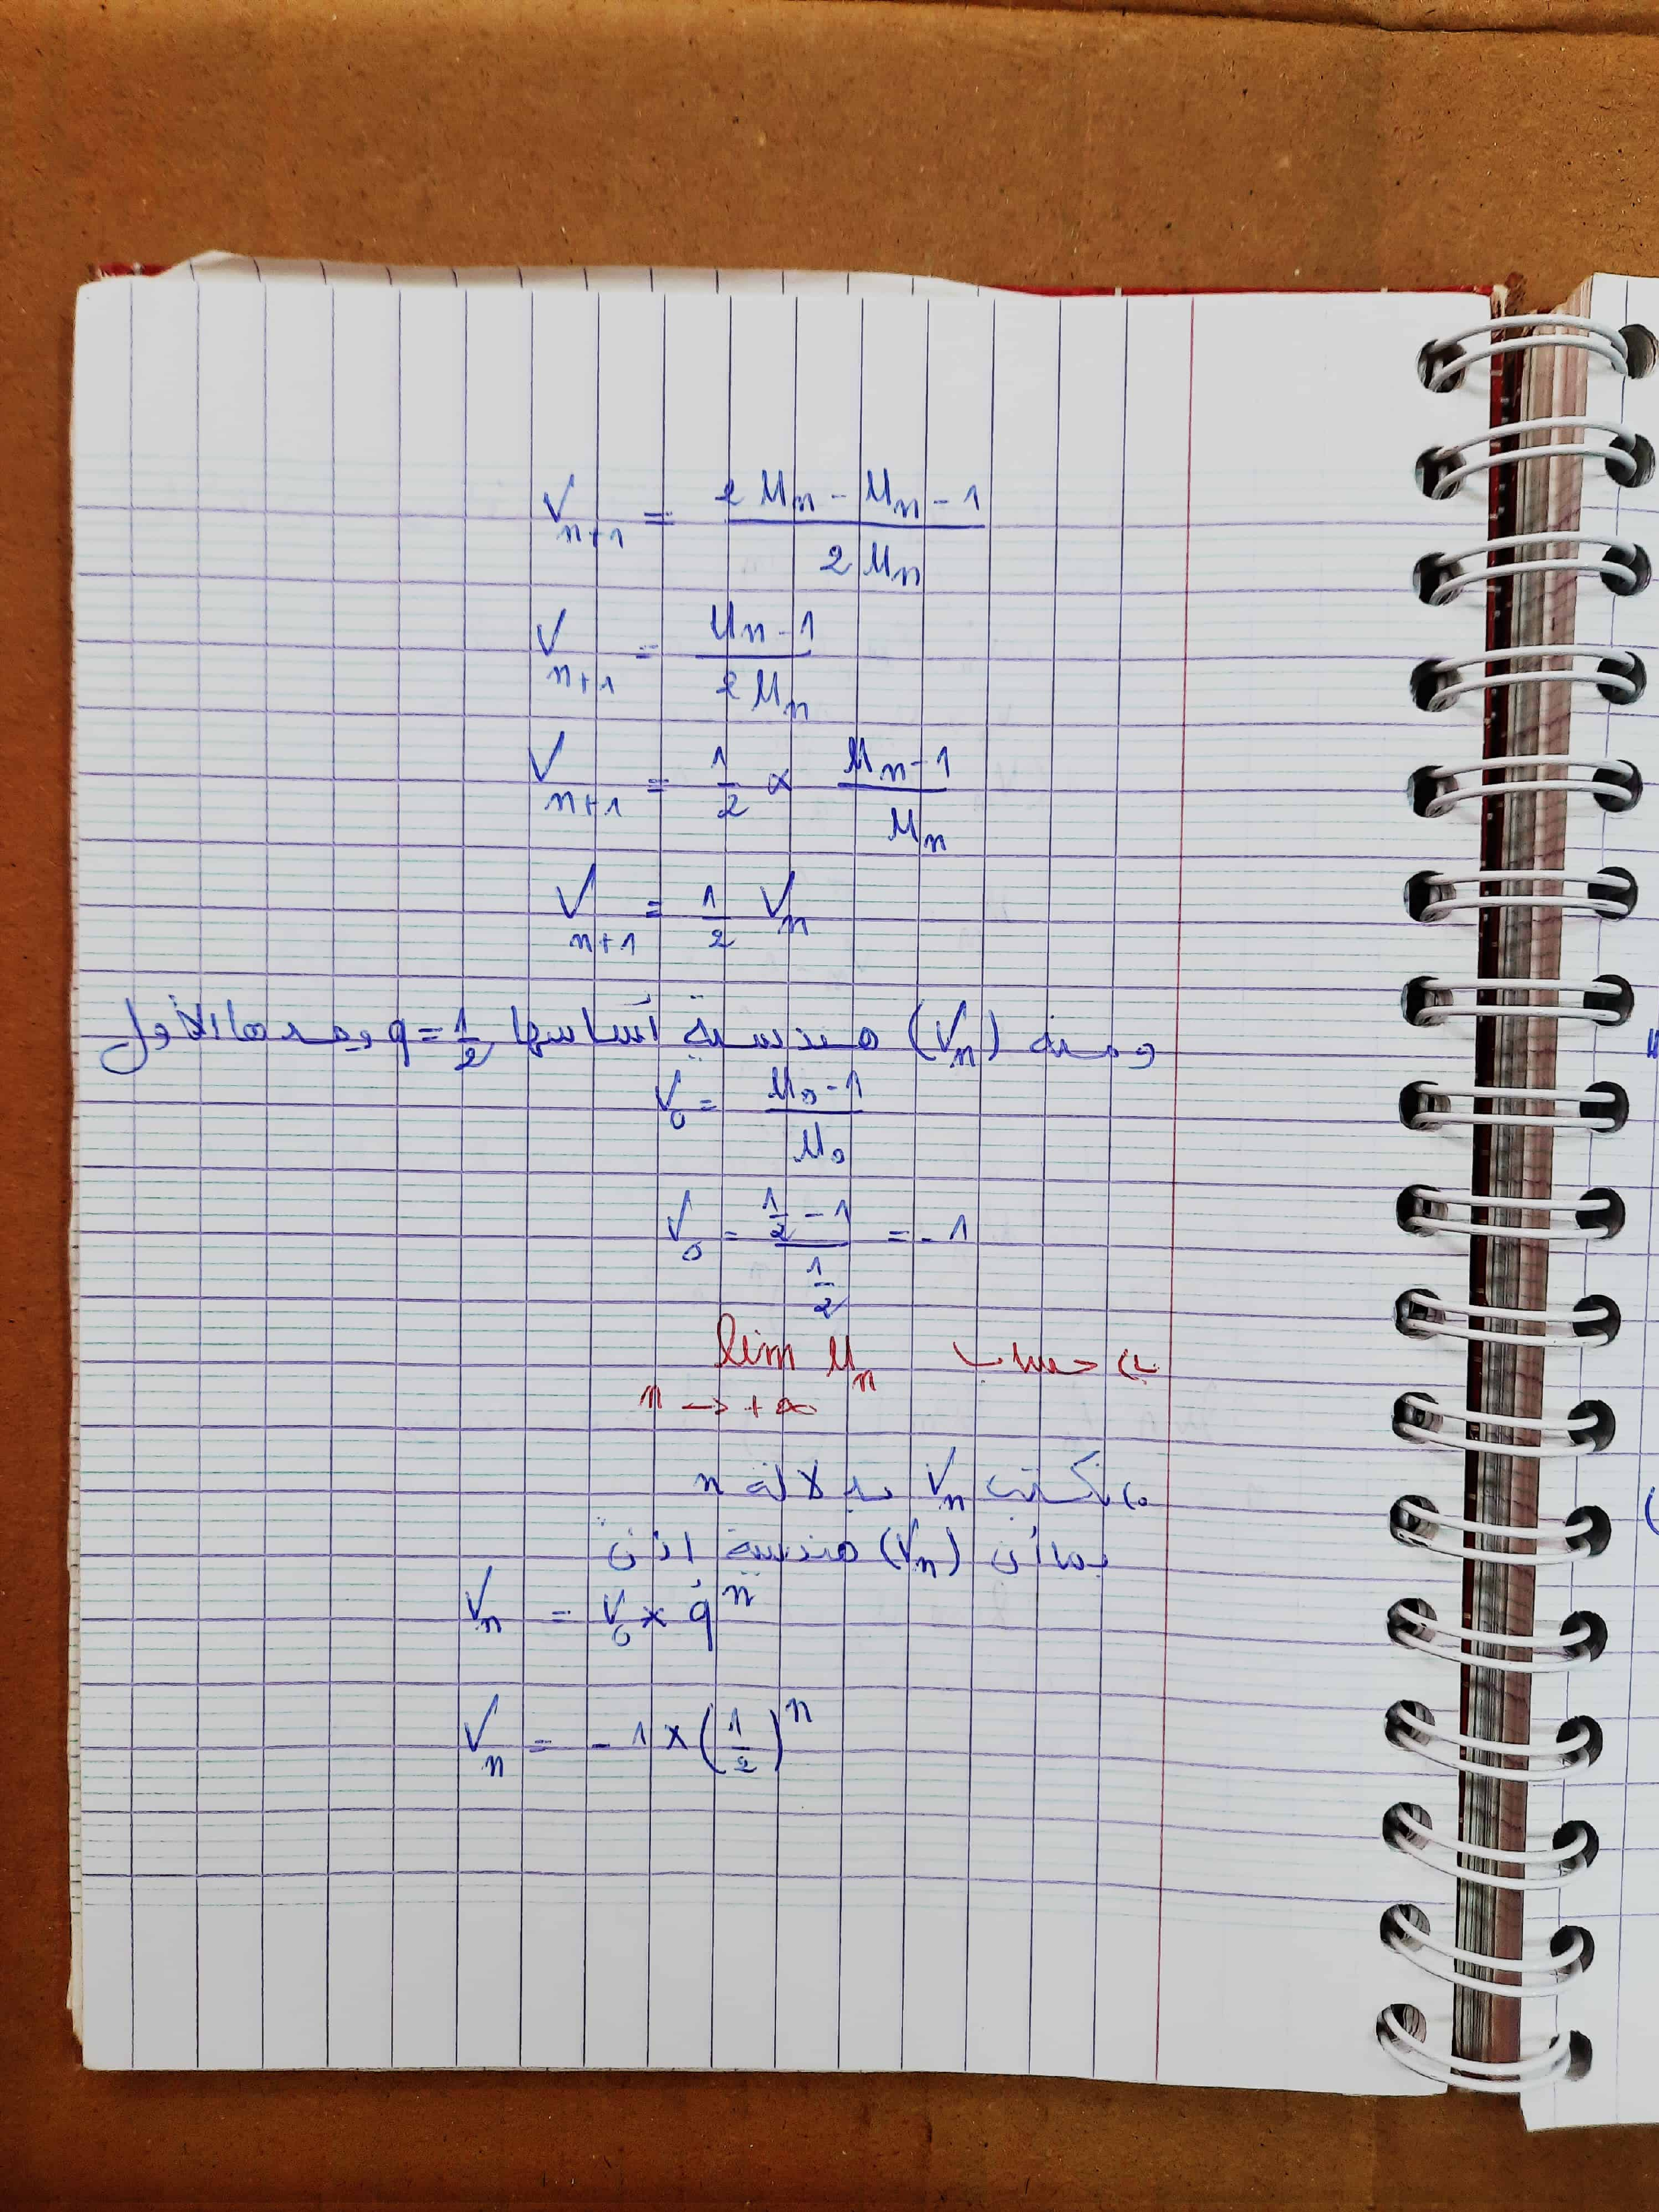 V_{n+1} = \frac{2U_n - U_n - 1}{2U_n}
V_{n+1} = \frac{U_n - 1}{2U_n}
V_{n+1} = \frac{1}{2} × \frac{U_n - 1}{U_n}
V_{n+1} = \frac{1}{2} V_n
ومنه (V_n) هندسية أساسها q = \frac{1}{2} وحدها الأول
V_0 = \frac{U_0 - 1}{U_0}
V_0 = \frac{\frac{1}{2} - 1}{\frac{1}{2}} = -1
حساب lim U_n
n → +∞
نكتب V_n بدلالة n
بما أن (V_n) هندسية اذن
V_n = V_0 × q^n
V_n = -1 × (\frac{1}{2})^n